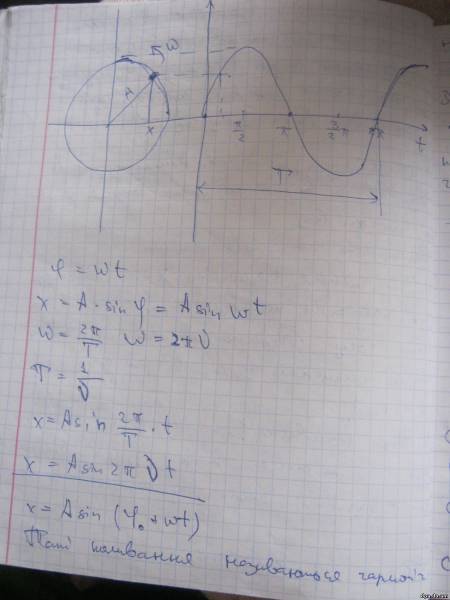 ω
A
x
π/2 π 3/2 π 2π t
T
φ = ωt
x = A · sin φ = A sin ωt
ω = 2π/T ω = 2πν
T = 1/ν
x = A sin 2π/T · t
x = A sin 2π νt
x = A sin (φ₀ + ωt)
Такі коливання називаються гармоніч